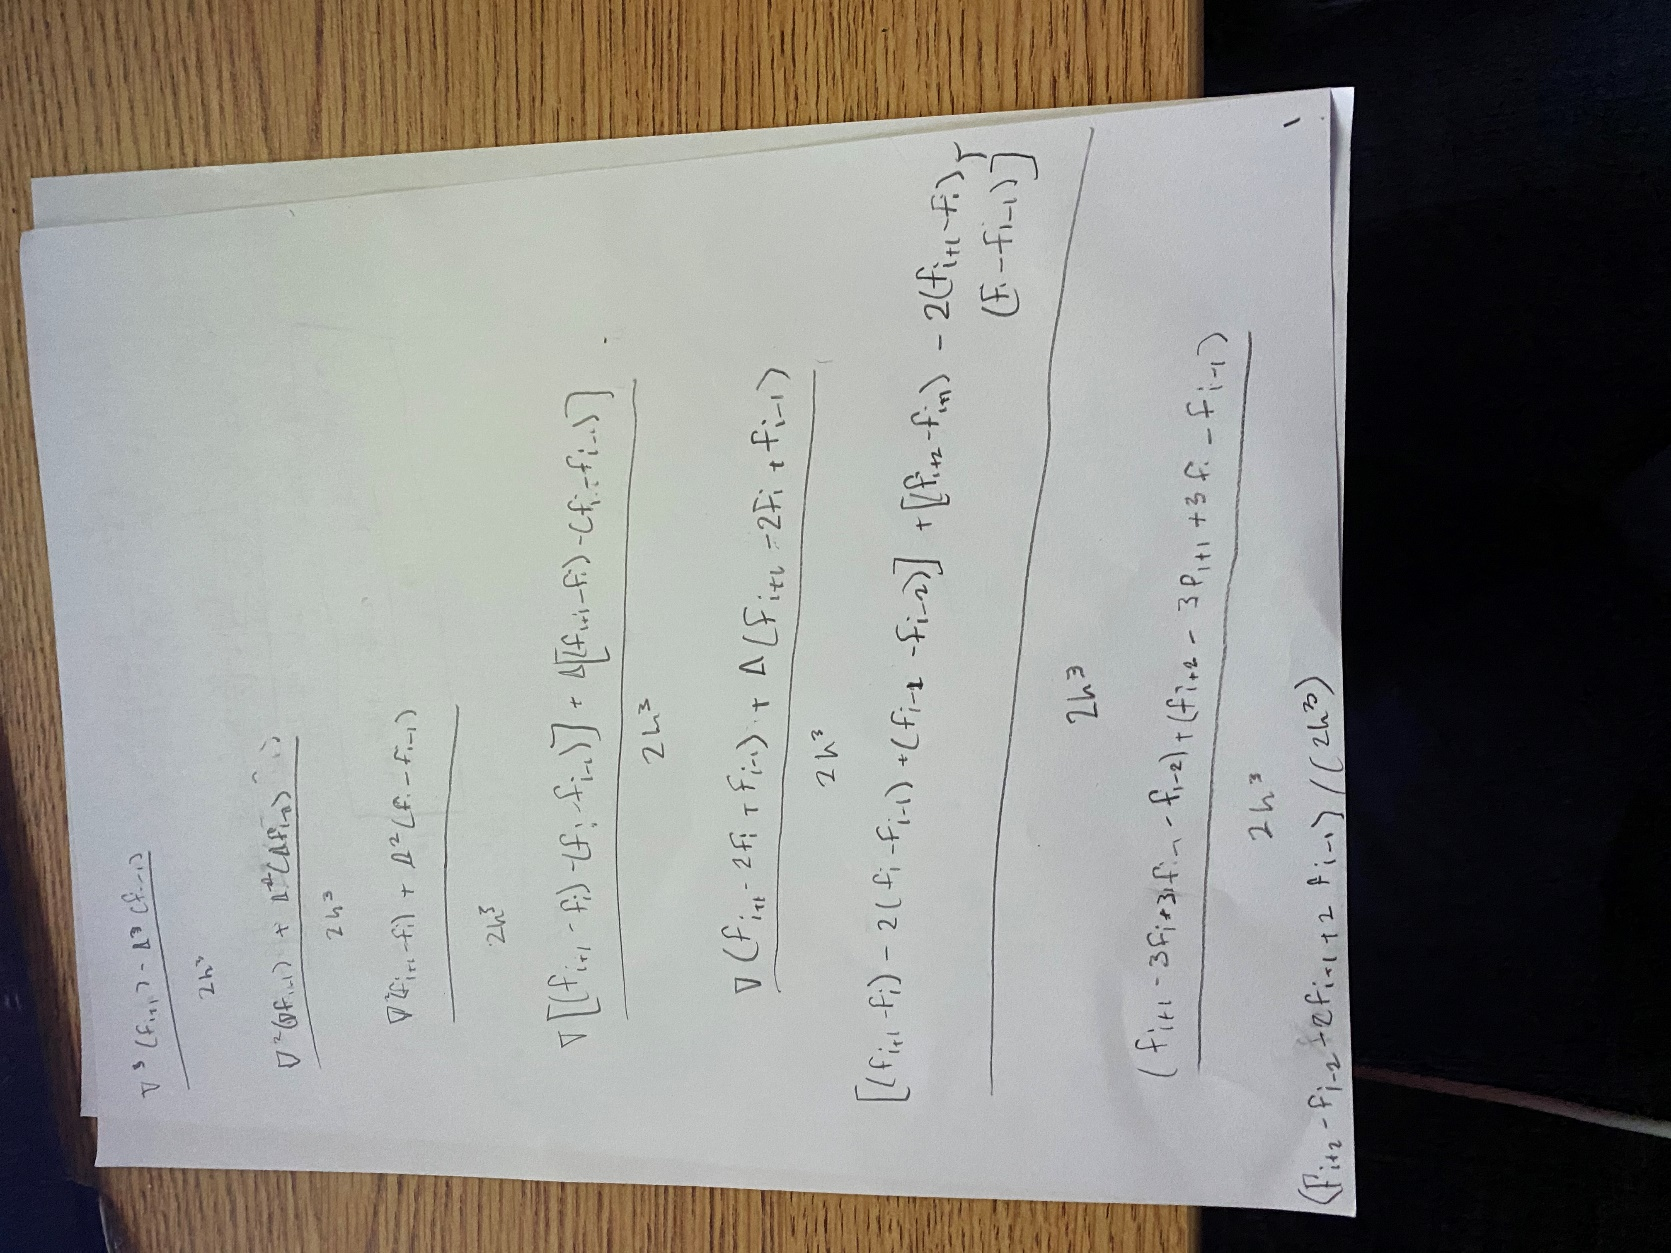 ∇³(fᵢ₊₁) - Δ³(fᵢ₋₁)
2h³
∇²(∇fᵢ₊₁) + Δ²(Δfᵢ₋₁)
2h³
∇²(fᵢ₊₁-fᵢ) + Δ²(fᵢ-fᵢ₋₁)
2h³
∇[(fᵢ₊₁-fᵢ)-(fᵢ-fᵢ₋₁)] + Δ[(fᵢ₊₁-fᵢ)-(fᵢ-fᵢ₋₁)]
2h³
∇(fᵢ₊₁-2fᵢ+fᵢ₋₁) + Δ(fᵢ₊₁-2fᵢ+fᵢ₋₁)
2h³
[(fᵢ₊₁-fᵢ)-2(fᵢ-fᵢ₋₁)+(fᵢ₋₁-fᵢ₋₂)] + [(fᵢ₊₂-fᵢ₊₁)-2(fᵢ₊₁-fᵢ)+
(fᵢ-fᵢ₋₁)]
2h³
(fᵢ₊₁-3fᵢ+3fᵢ₋₁-fᵢ₋₂)+(fᵢ₊₂-3fᵢ₊₁+3fᵢ-fᵢ₋₁)
2h³
(fᵢ₊₂-fᵢ₋₂+2fᵢ₊₁+2fᵢ₋₁)/(2h³)